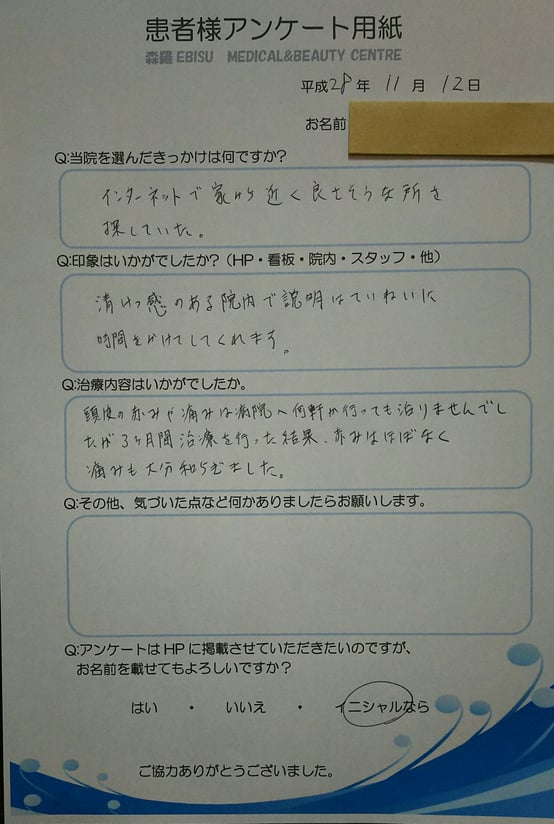 患者様アンケート用紙
森羅 EBISU MEDICAL&BEAUTY CENTRE
平成28年 11月 12日
お名前
Q:当院を選んだきっかけは何ですか?
インターネットで家から近く良さそうな所を
探していた。
Q:印象はいかがでしたか?(HP・看板・院内・スタッフ・他)
清けつ感のある院内で説明はていねいに
時間をかけてしてくれます。
Q:治療内容はいかがでしたか。
頭皮の赤みや痛みは病院へ何軒か行っても治りませんでし
たが3ヶ月間治療を行った結果、赤みはほぼなく
痛みも大分和らぎました。
Q:その他、気づいた点など何かありましたらお願いします。
Q:アンケートはHPに掲載させていただきたいのですが、
お名前を載せてもよろしいですか?
はい ・ いいえ ・ イニシャルなら
ご協力ありがとうございました。